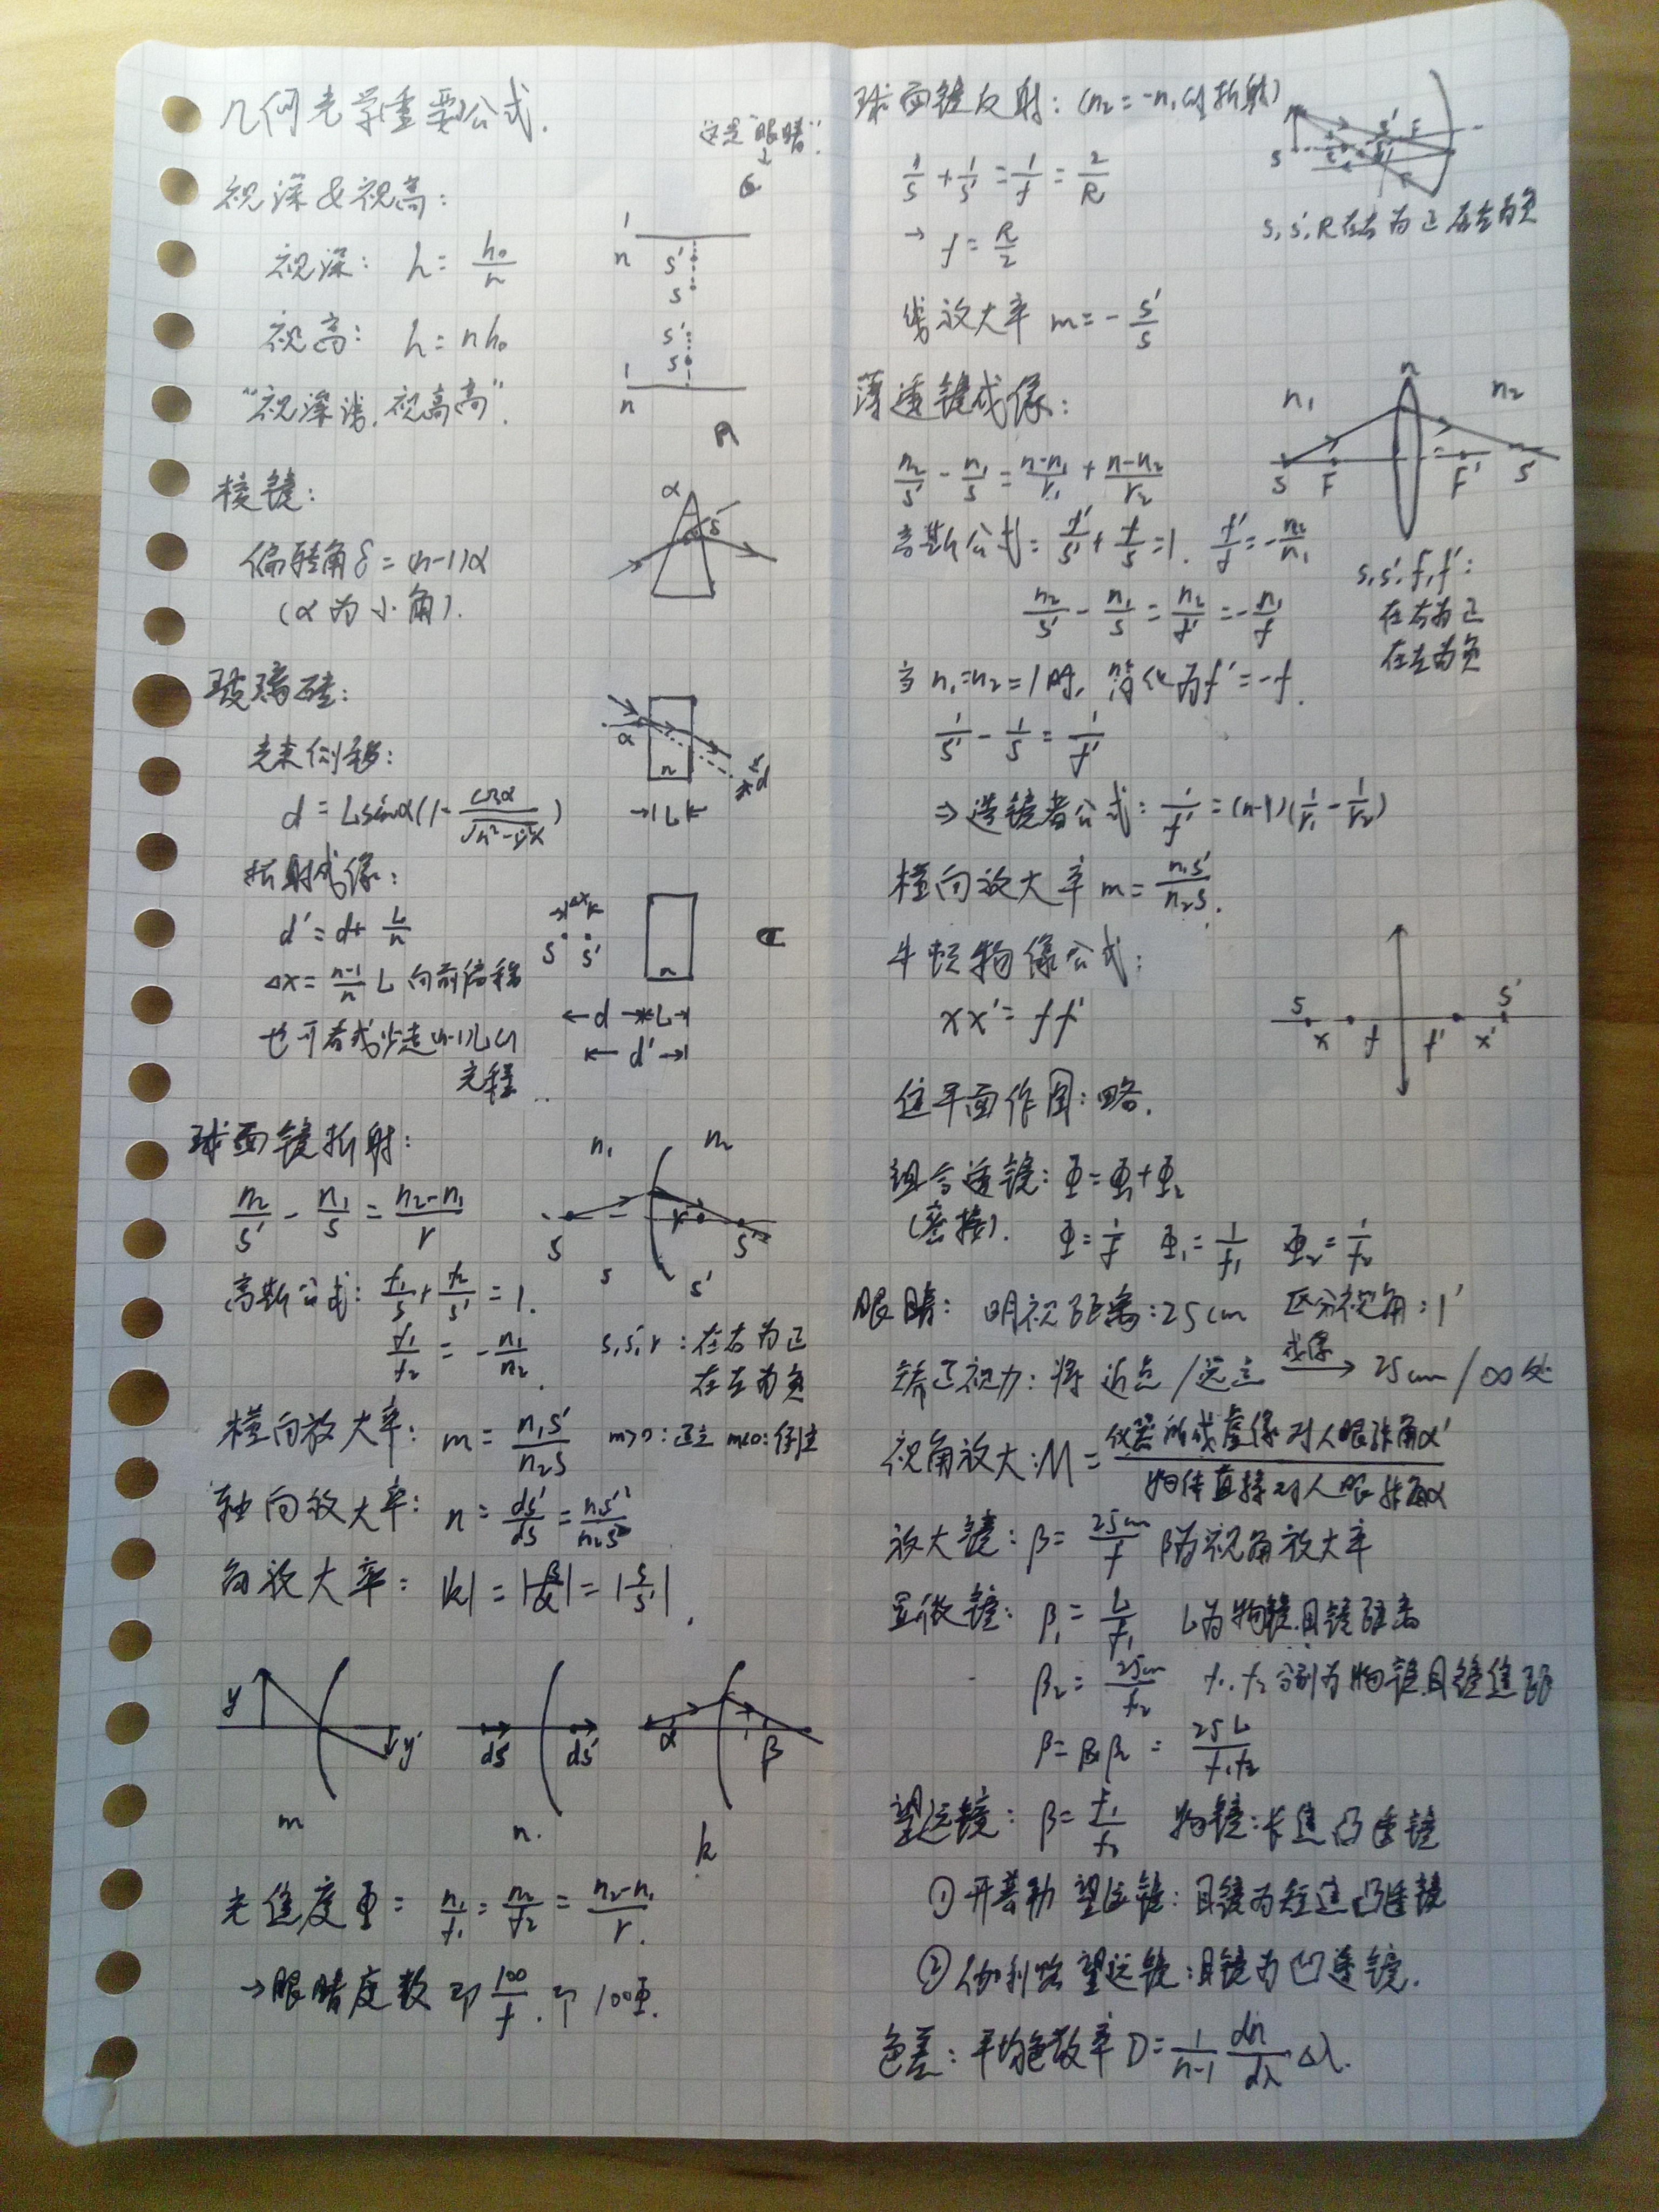 几何光学重要公式.
这是"眼睛".
视深&视高:
视深: h = h₀/n
1
n
s'
s
视高: h = nh₀
s'
s
1
n
"视深浅,视高高".
棱镜:
α
δ
偏转角δ = (n-1)α
(α为小角).
玻璃砖:
α
n
d
L
光束侧移:
d = Lsinα(1 - cosα/√(n²-sin²α))
折射成像:
d' = d + L/n
Δx
s s'
n
Δx = (n-1)/n L 向前偏移
d L
d'
也可看成少走(n-1)L的
光程
球面镜折射:
n₁ n₂
n₂/s' - n₁/s = (n₂-n₁)/r
s r s'
s s'
高斯公式: f₁/s + f₂/s' = 1.
f₁/f₂ = -n₁/n₂.
s,s',r: 在右为正
在左为负
横向放大率: m = n₁s'/n₂s m>0:正立 m<0:倒立
轴向放大率: n = ds'/ds = n₁s'²/n₂s²
角放大率: |k| = |β/α| = |s/s'|.
y y'
m
ds ds'
n.
α β
k
光焦度Φ = n₁/f₁ = n₂/f₂ = (n₂-n₁)/r.
→眼睛度数即100/f.即100Φ.
球面镜反射: (n₂=-n₁的折射)
1/s + 1/s' = 1/f = 2/R
→ f = R/2
s,s',R在右为正在左为负
线放大率 m = - s'/s
薄透镜成像:
n₁ n n₂
s F F' s'
n₂/s' - n₁/s = (n-n₁)/r₁ + (n-n₂)/r₂
高斯公式= f'/s' + f/s = 1. f'/f = -n₂/n₁
n₂/s' - n₁/s = n₂/f' = -n₁/f
s,s',f,f':
在右为正
在左为负
当n₁=n₂=1时, 简化为f' = -f.
1/s' - 1/s = 1/f'
⇒造镜者公式: 1/f' = (n-1)(1/r₁ - 1/r₂)
横向放大率 m = n₁s'/n₂s.
牛顿物像公式:
xx' = ff'
s s'
x f f' x'
焦平面作图:略.
组合透镜: Φ = Φ₁+Φ₂
(密接). Φ=1/f Φ₁=1/f₁ Φ₂=1/f₂
眼睛: 明视距离:25cm 区分视角:1'
矫正视力: 将近点/远点 成像→ 25cm/∞处
视角放大:M = 仪器所成虚像对人眼张角α'/物体直接对人眼张角α
放大镜: β = 25cm/f β为视角放大率
显微镜: β₁ = L/f₁ L为物镜.目镜距离
β₂ = 25cm/f₂ f₁,f₂分别为物镜目镜焦距
β = β₁β₂ = 25L/f₁f₂
望远镜: β = f₁/f₂ 物镜:长焦凸透镜
①开普勒望远镜: 目镜为短焦凸透镜
②伽利略望远镜:目镜为凹透镜.
色差: 平均色散率 D = 1/(n-1) dn/dλ Δλ.